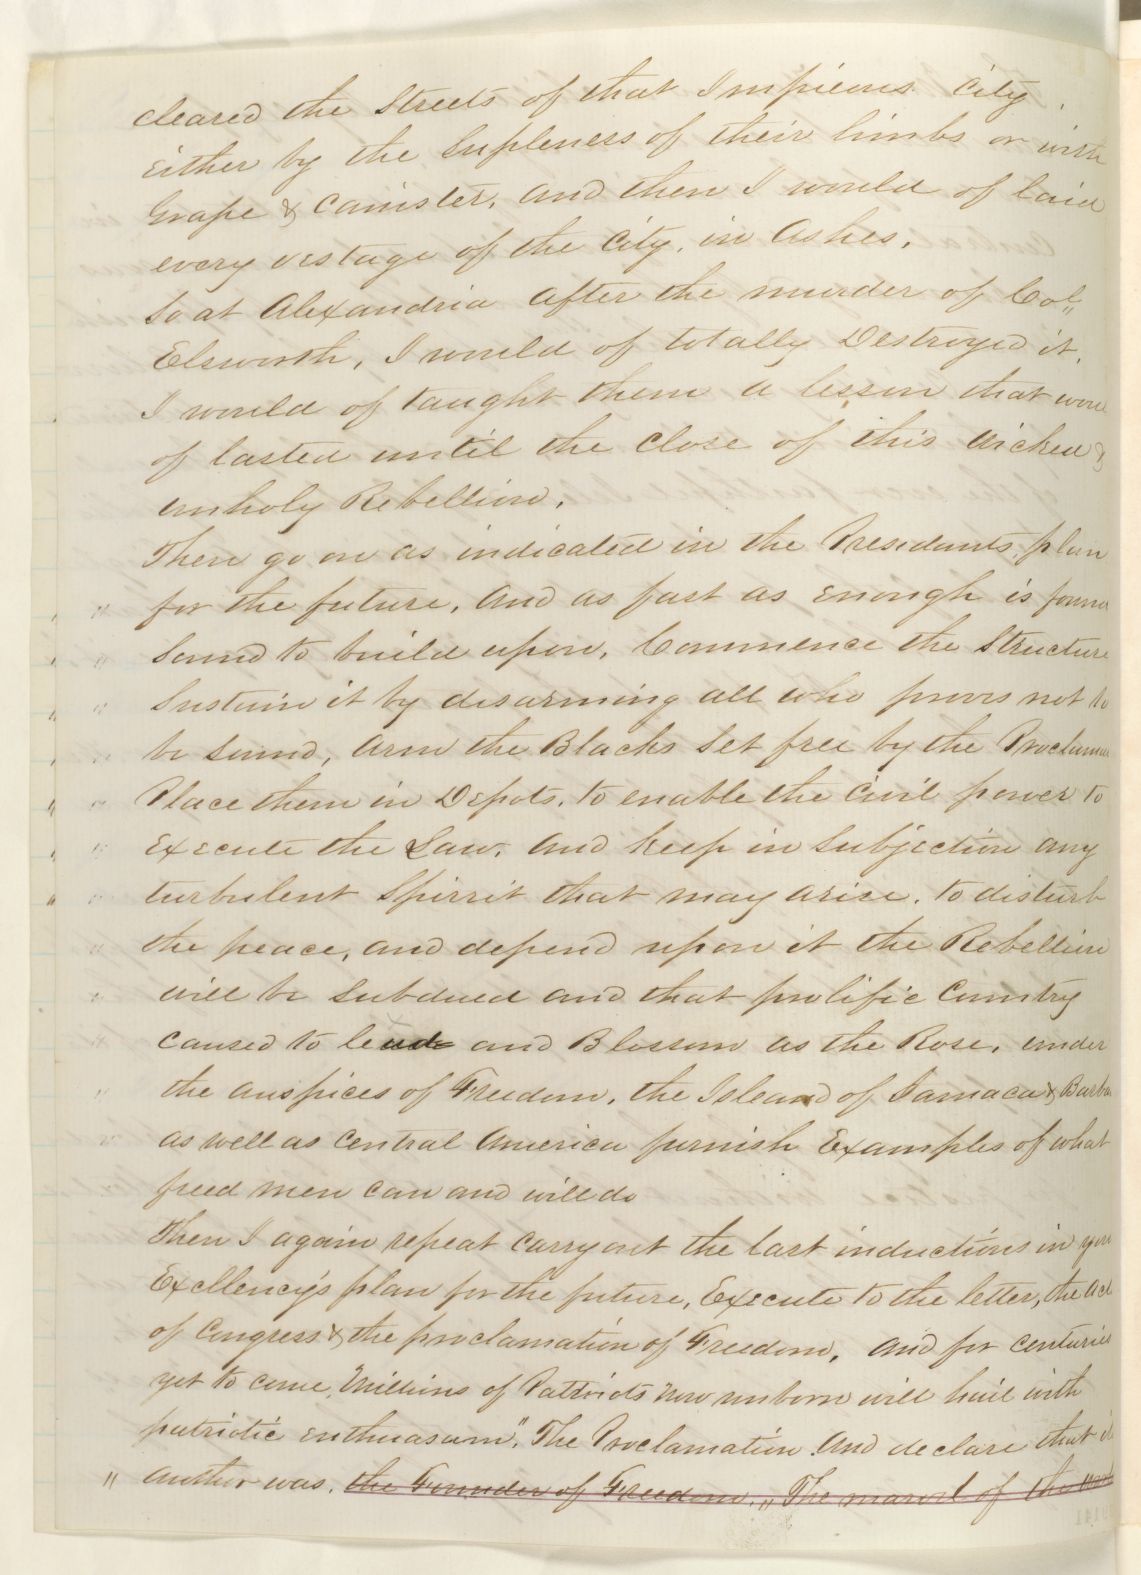 cleared the Streets of that Impieous City,
either by the Supleness of their limbs or with
Grape & Canister, and then I would of laid
every vestage of the City, in Ashes,
So at Alexandria after the murder of Col"
Elsworth, I would of totally Destroyed it,
I would of taught them a lesson that
of lasted until the Close of this Wicked &
unholy Rebellion,
Then go on as indicated in the Presidants, plan
" for the future, and as fast as enough is
" Sound to build upon, Commence the Structure
" Sustain it by disarming all who proves not to
" be Sound, Arm the Blacks Set free by the
" Place them in Depots, to enable the Civil power to
" Execute the Law, and keep in Subjection any
" turbulent Spirrit that may arise, to disturb
" the peace, and depend upon it the Rebellion
" will be Subdued and that prolific Country
Caused to and Blossom as the Rose, under
" the auspices of Freedom, the Island of Jamaca &
" as well as Central America furnish Examples of what
freed men can and will do
Then I again repeat Carry out the last inductions in
Excellency's plan for the future, Execute to the letter, the
of Congress & the proclamation of Freedom, and for Centuries
yet to come, Millions of Patriots now unborn will hail with
patriotic enthuasam", The Proclamation And declare that
" author was, the Founder of Freedom, " The marvel of the